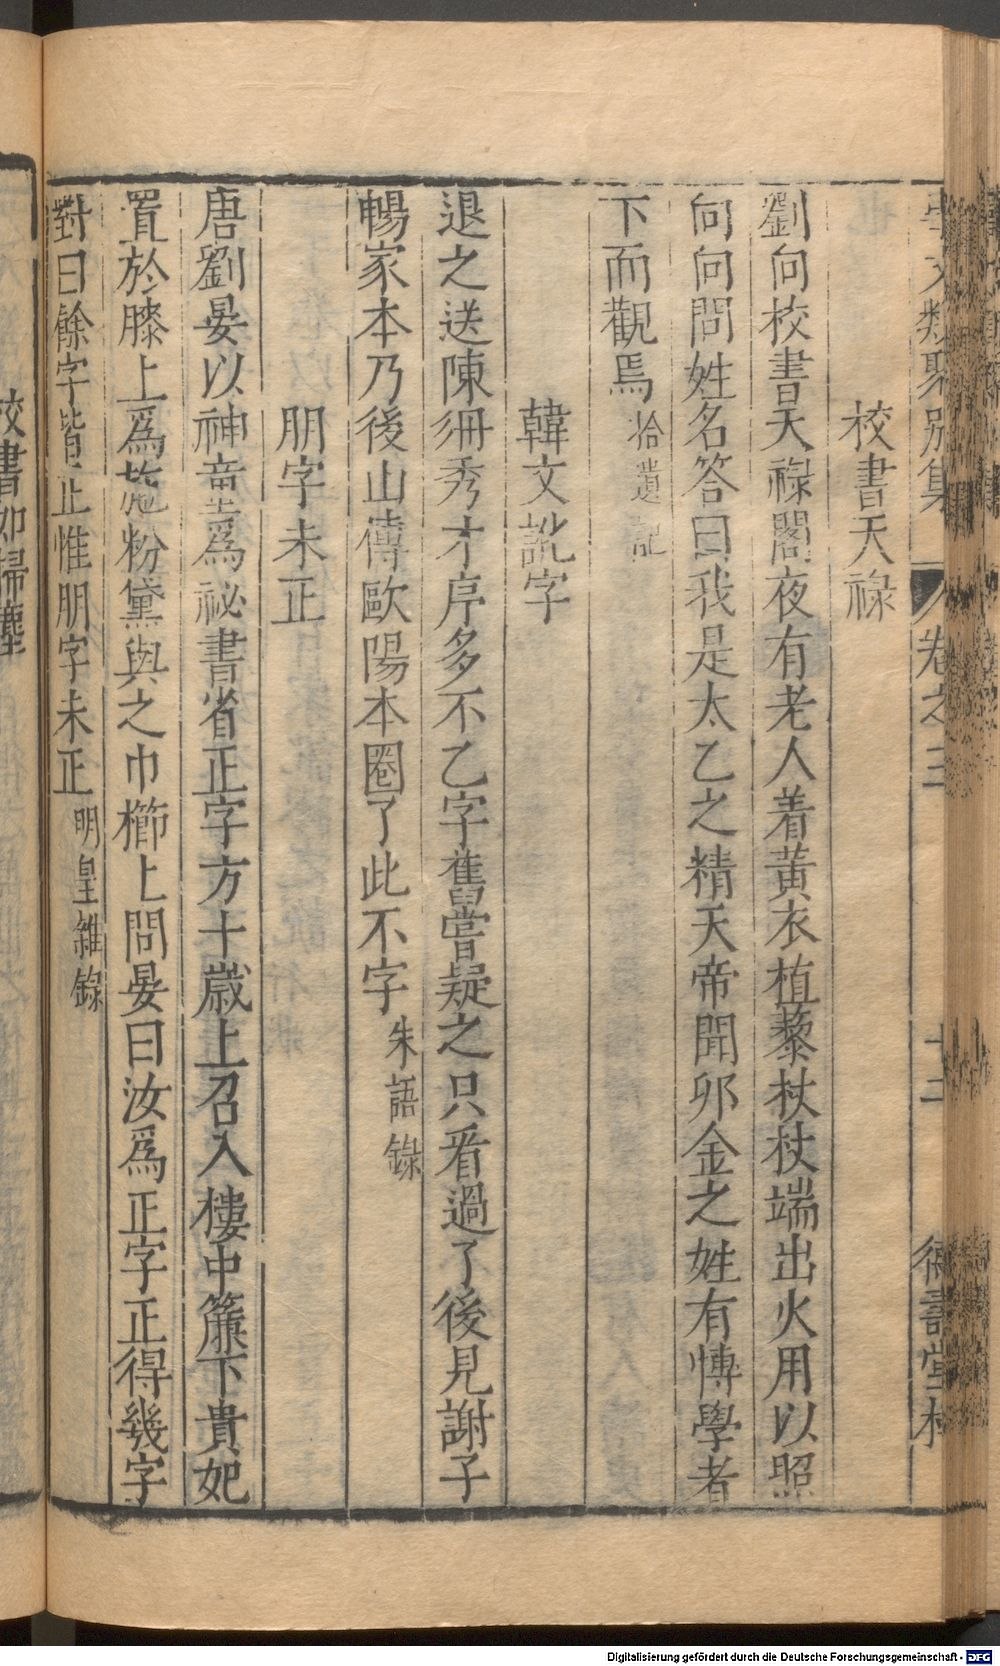 事文類聚別集 卷之三 十二 德壽堂梓
校書天祿
劉向校書天祿閣夜有老人着黃衣植藜杖杖端出火用以照
向向問姓名答曰我是太乙之精天帝聞卯金之姓有博學者
下而觀焉 拾遺記
韓文訛字
退之送陳彤秀才序多不乙字舊嘗疑之只看過了後見謝子
暢家本乃後山傳歐陽本圈了此不字 朱語錄
朋字未正
唐劉晏以神童爲祕書省正字方十歲上召入樓中簾下貴妃
置於膝上爲施粉黛與之巾櫛上問晏曰汝爲正字正得幾字
對曰餘字皆正惟朋字未正 明皇雜錄
校書如掃塵
Digitalisierung gefördert durch die Deutsche Forschungsgemeinschaft - DFG